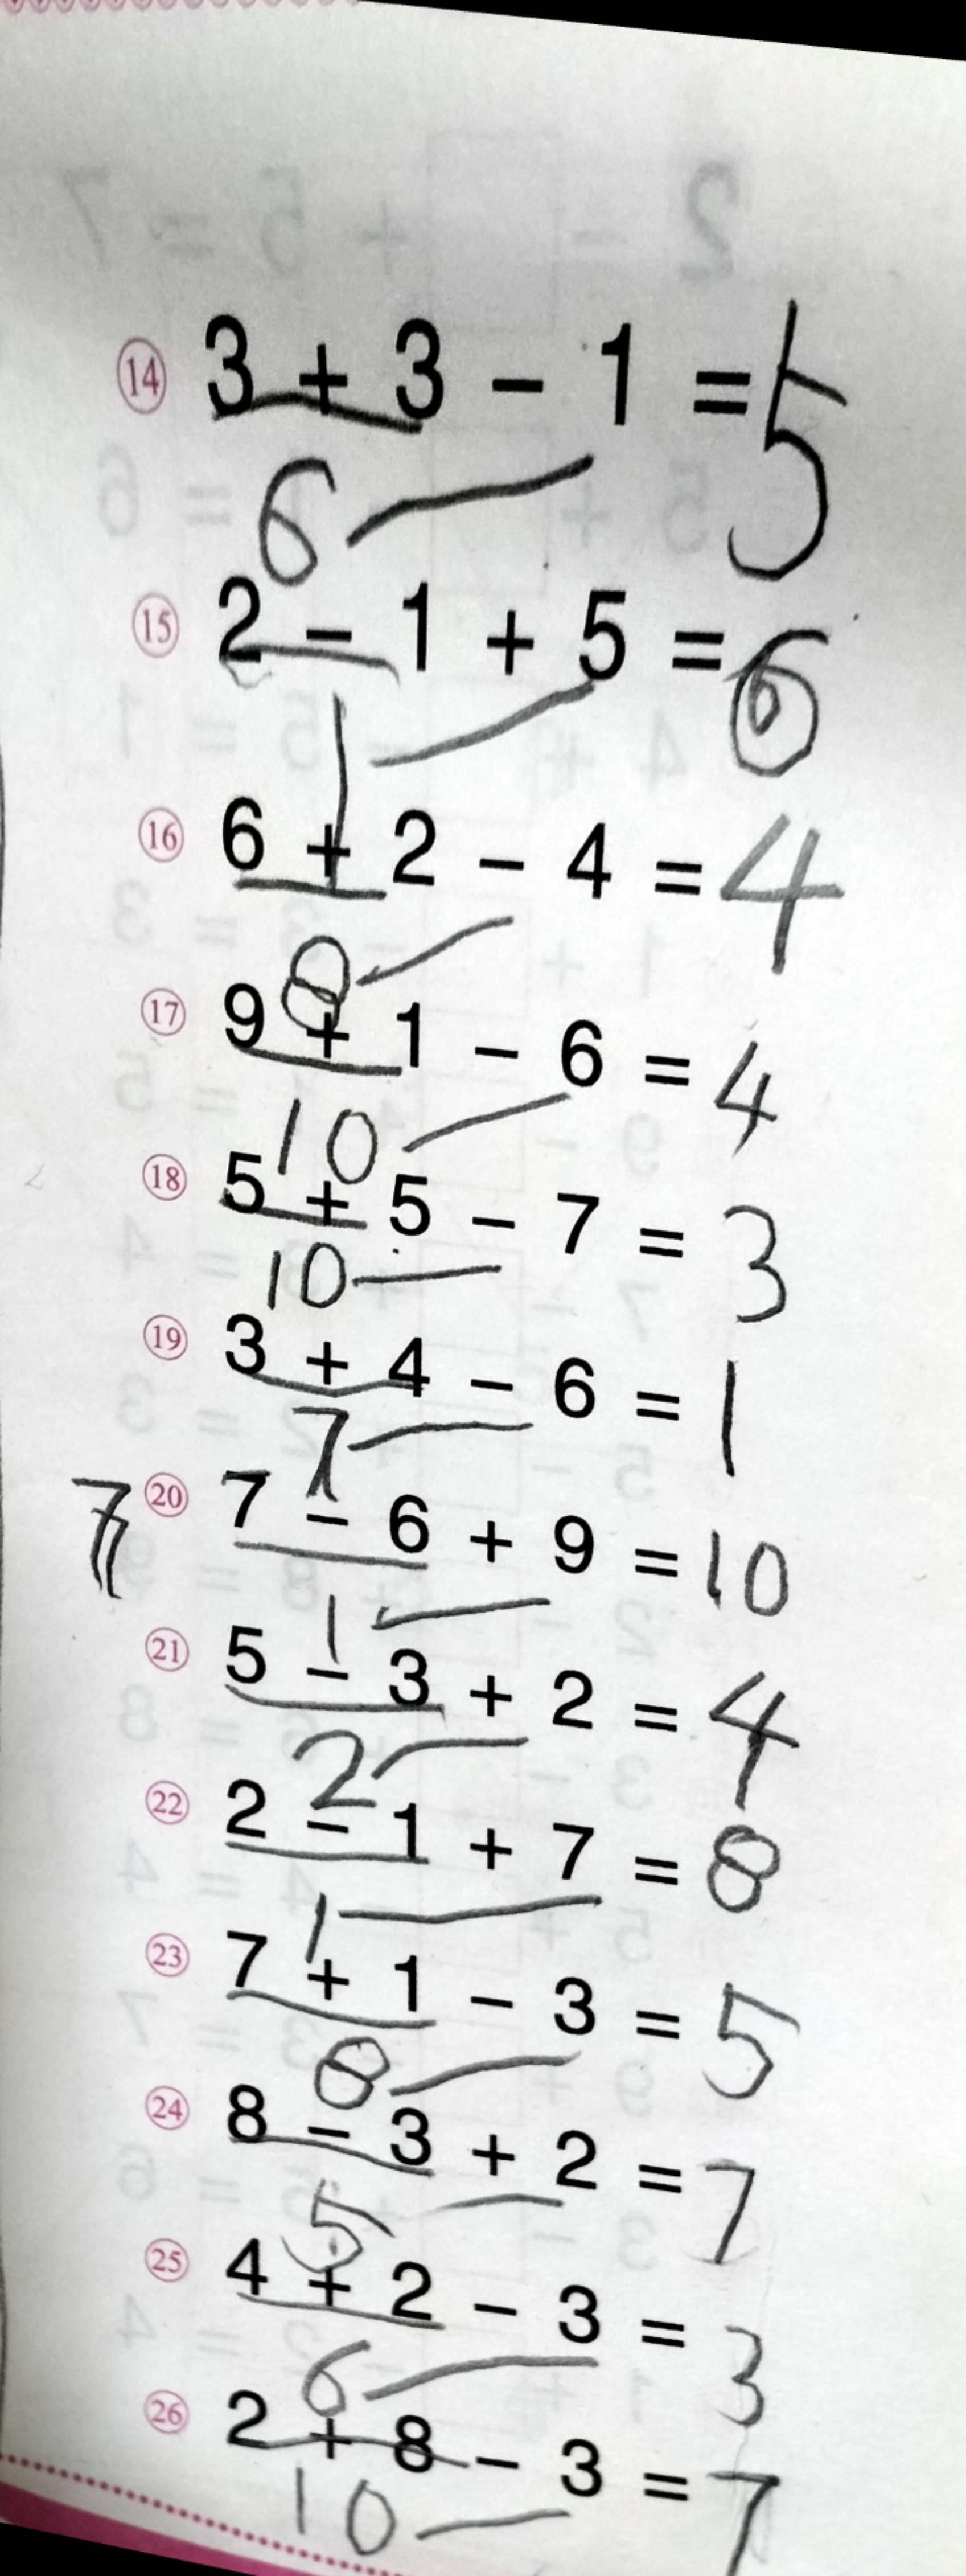 ⑭ 3 + 3 - 1 = 5
6
⑮ 2 - 1 + 5 = 6
1
⑯ 6 + 2 - 4 = 4
8
⑰ 9 + 1 - 6 = 4
10
⑱ 5 + 5 - 7 = 3
10
⑲ 3 + 4 - 6 = 1
7
7 ⑳ 7 - 6 + 9 = 10
1
㉑ 5 - 3 + 2 = 4
2
㉒ 2 - 1 + 7 = 8
1
㉓ 7 + 1 - 3 = 5
8
㉔ 8 - 3 + 2 = 7
5
㉕ 4 + 2 - 3 = 3
6
㉖ 2 + 8 - 3 = 7
10